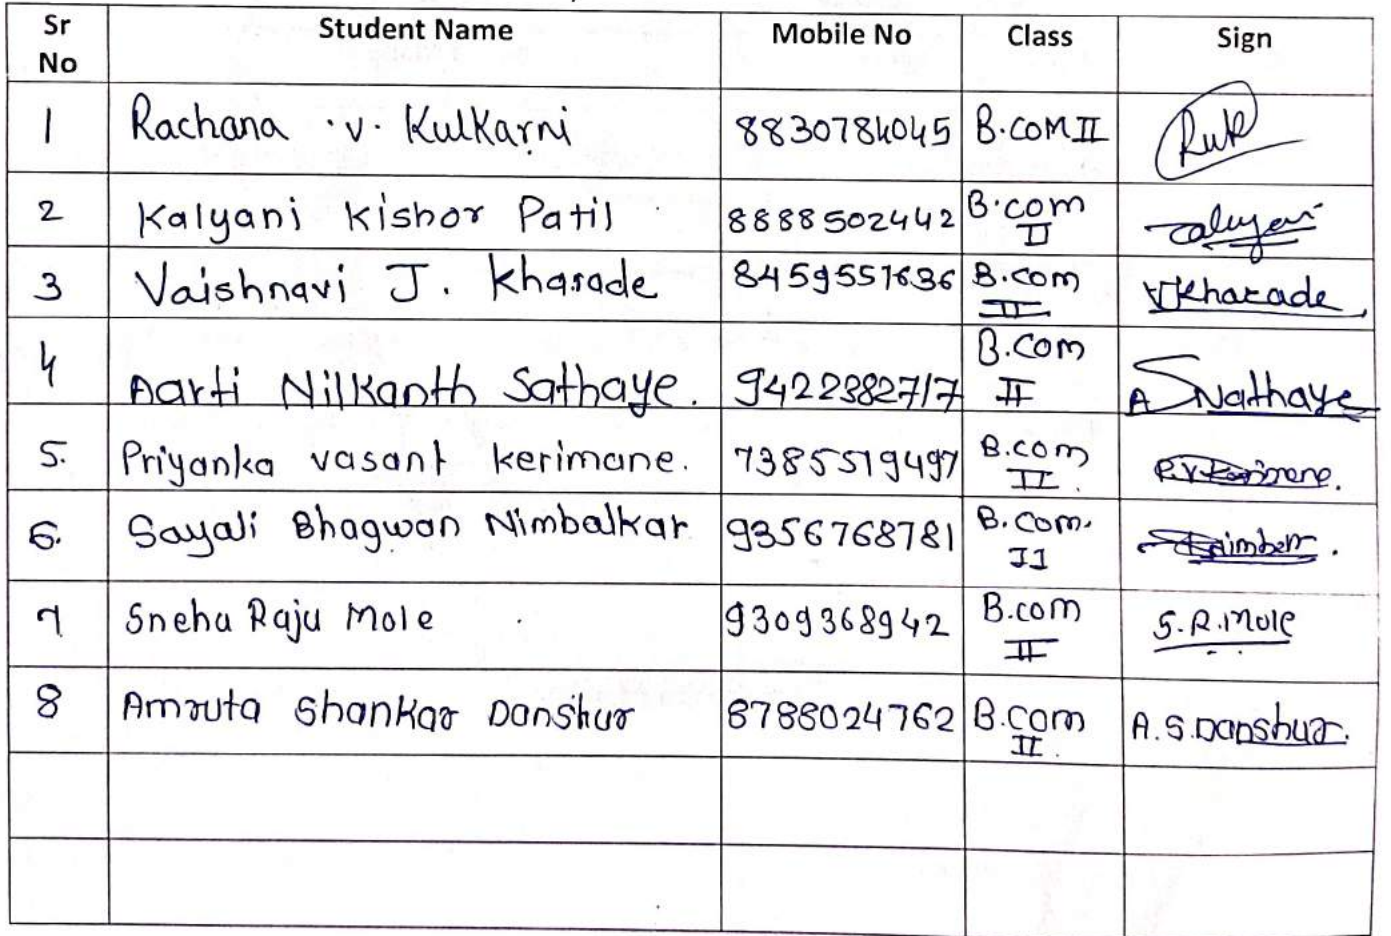 Sr No Student Name Mobile No Class Sign
1 Rachana .v. Kulkarni 8830784045 B.COM II
2 Kalyani Kishor Patil 8888502442 B.com II
3 Vaishnavi J. Kharade 8459551636 B.com II VKharade
4 Aarti Nilkanth Sathaye. 9422382717 B.com II
5. Priyanka vasant kerimane. 7385519497 B.com II P.V.Kerimane.
6. Sayali Bhagwan Nimbalkar 9356768781 B.com. II
7 Sneha Raju Mole 9309368942 B.com II S.R.Mole
8 Amruta Shankar Danshur 8788024762 B.com II. A.S.Danshur.